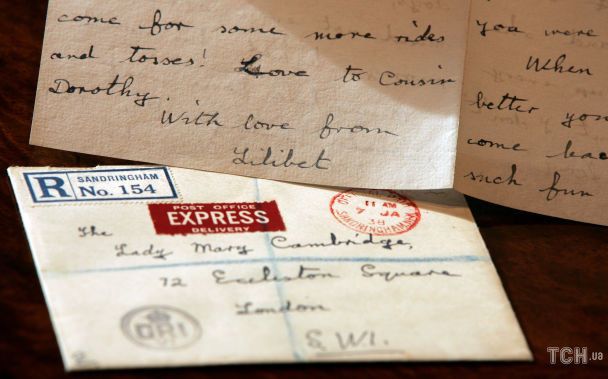 come for some more rides
and tosses! Love to Cousin
Dorothy.
With love from
Lilibet
you were
When
better you
come
such fun
R SANDRINGHAM
No. 154
POST OFFICE
EXPRESS
DELIVERY
11 AM
7 JA
38
SANDRINGHAM
The
Lady Mary Cambridge,
72 Eccleston Square
London
S.W1.
TCH.ua